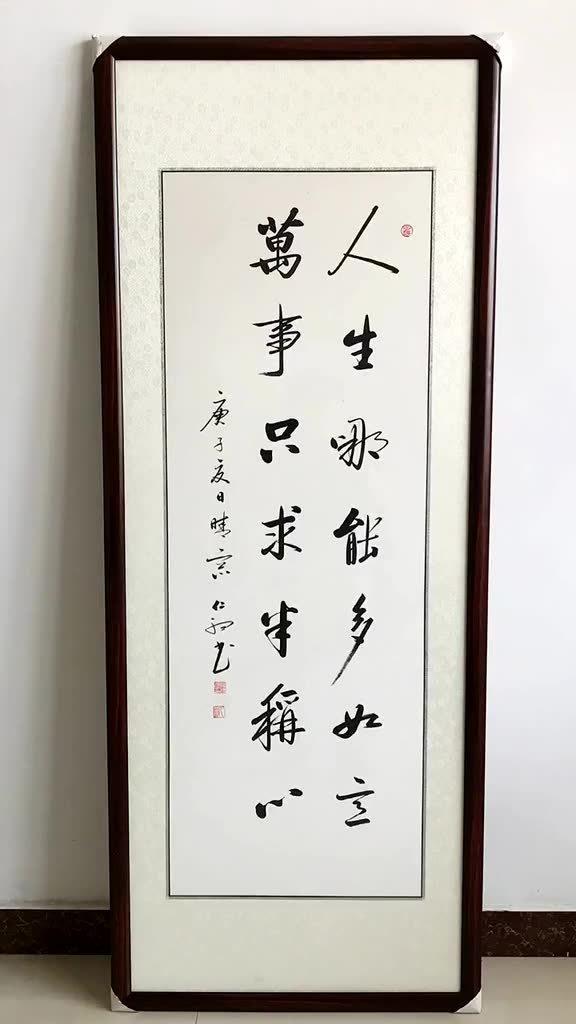 人生哪能多如意
萬事只求半稱心
庚子夏日晴窗 仁初书